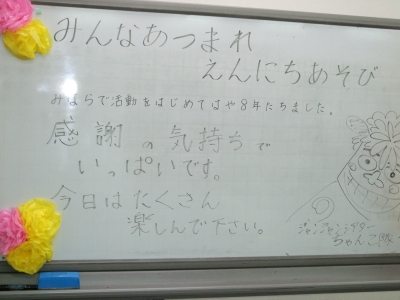 みんなあつまれ
えんにちあそび
みはらで活動をはじめてはや8年たちました。
感謝の気持ちで
いっぱいです。
今日はたくさん
楽しんで下さい。
ジャンジャンシアター
ちゃんこ隊